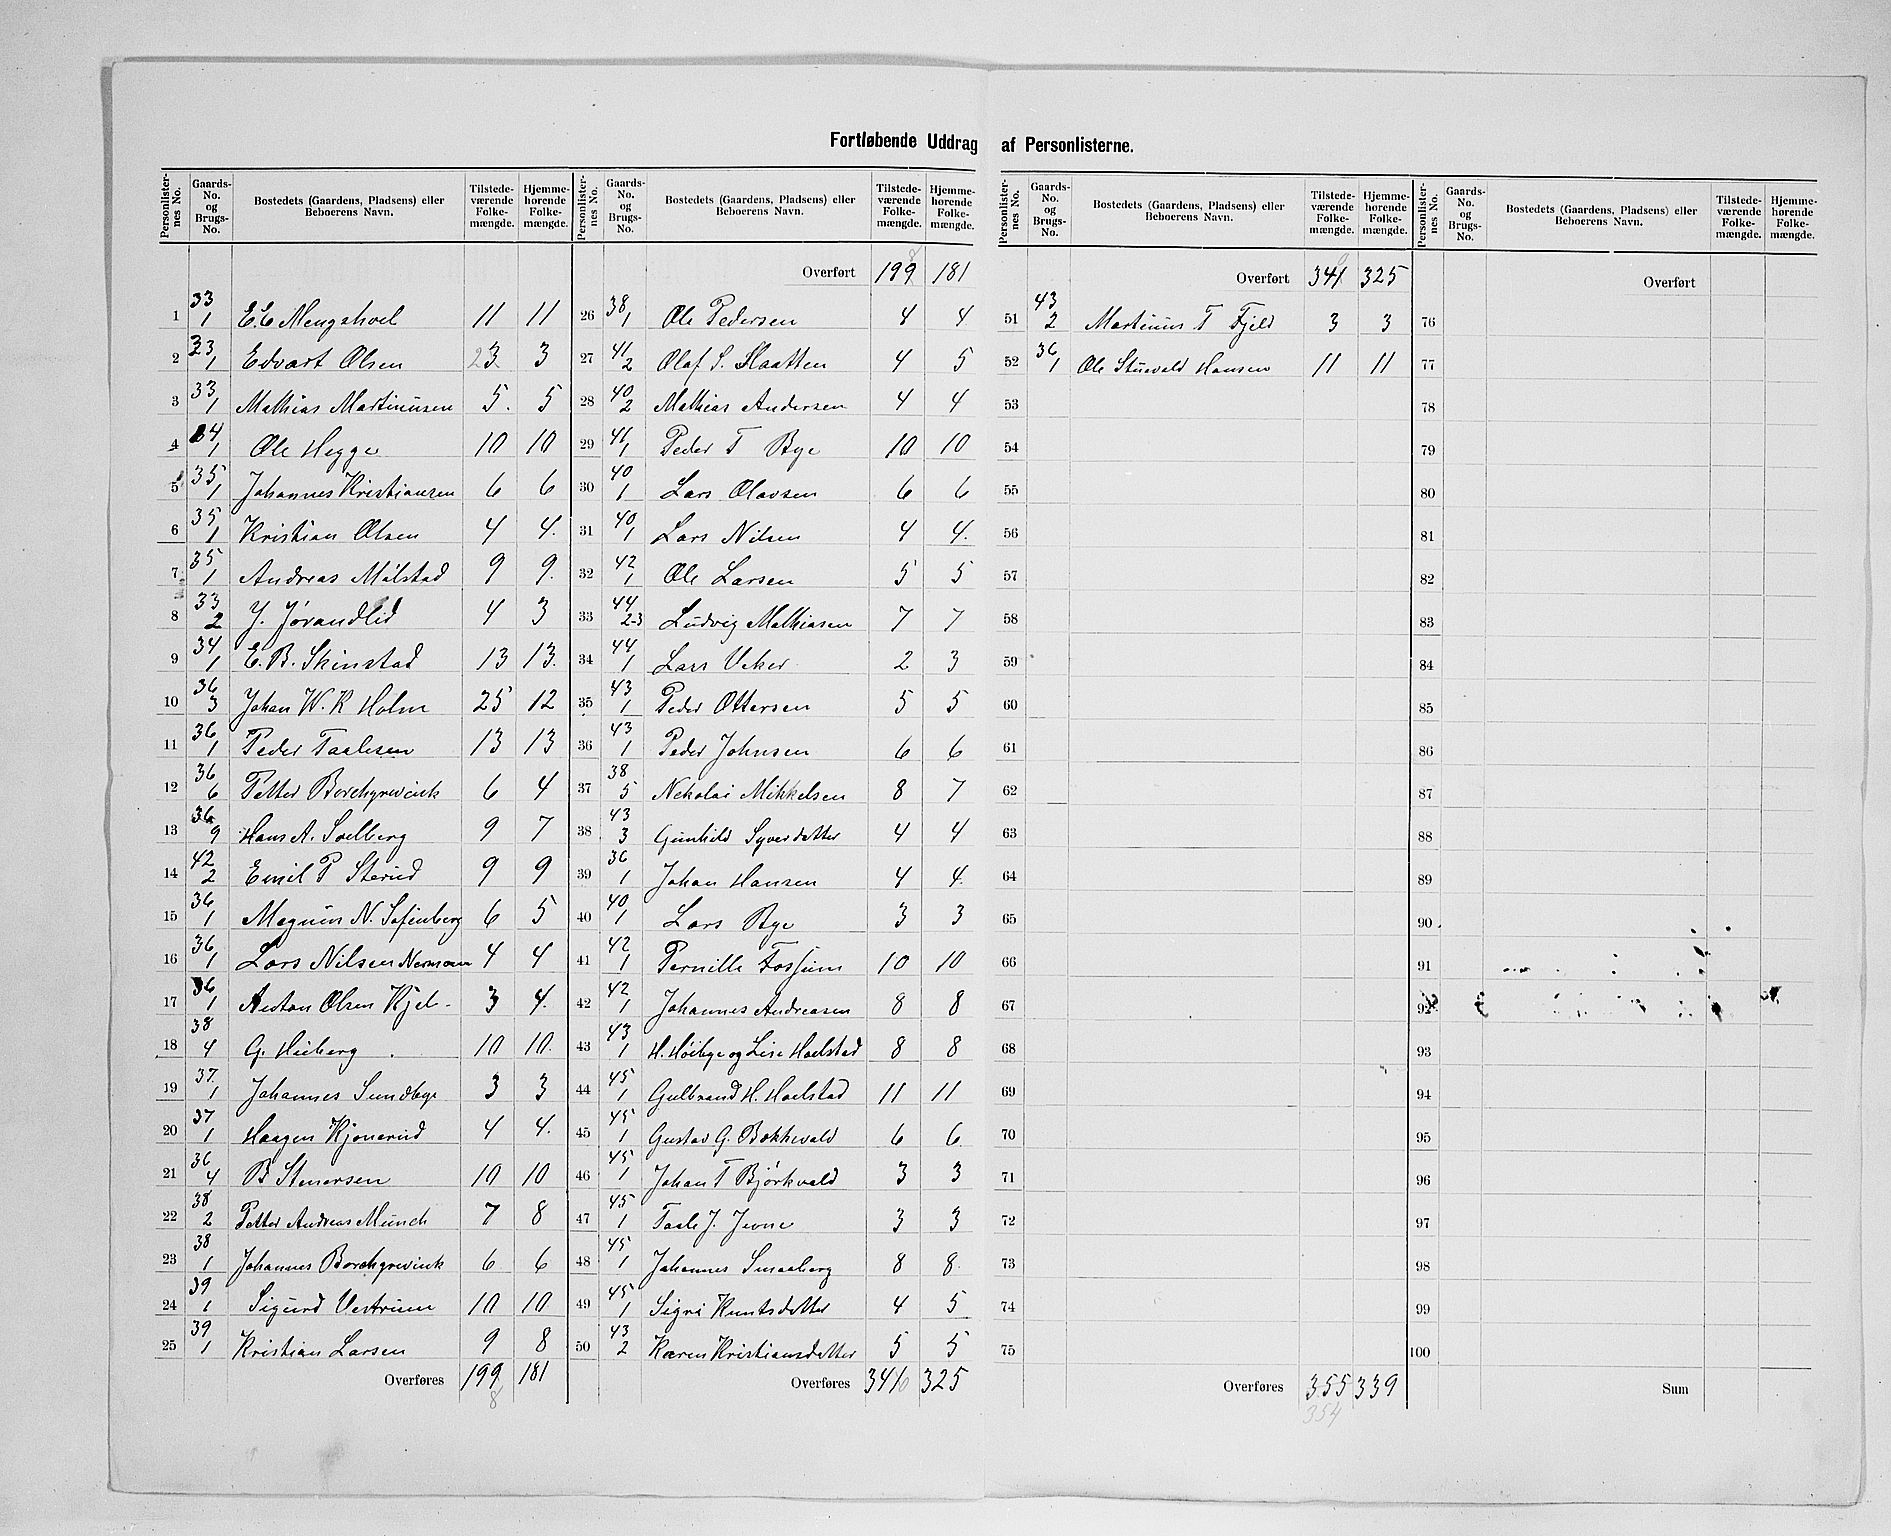 Fortløbende Uddrag af Personlisterne.
Personlisternes No. Gaards-No. og Brugs-No. Bostedets (Gaardens, Pladsens) eller Beboerens Navn. Tilstedeværende Folkemængde. Hjemmehørende Folkemængde.
1 33/1 E. E. Mengshoel 11 11
2 33/1 Edvart Olsen 23 3
3 33/1 Mathias Martinusen 5. 5
4 34/1 Ole Hegge 10 10
5 35/1 Johannes Kristiansen 6 6
6 35/1 Kristian Olsen 4 4.
7 35/1 Andreas Målstad 9 9.
8 33/2 J. Jørandlid 4 3
9 34/1 E. B. Skinstad 13 13.
10 36/3 Johan W. K Holm 25 12
11 36/1 Peder Taalesen 13 13
12 36/6 Petter Borchgrevink 6 4
13 36/9 Hans A. Solberg 9 7
14 42/2 Emil P Sterud 9 9
15 36/1 Magnus N. Sofienberg 6 5
16 36/1 Lars Nilsen Nermoen 4 4
17 36/1 Anton Olsen Kjel- 3 4.
18 38/4 G. Hieberg 10 10.
19 37/1 Johannes Sundbye 3 3
20 37/1 Haagen Kjonerud 4 4.
21 36/4 B Stenersen 10 10
22 38/2 Petter Andreas Münch 7 8
23 38/1 Johannes Borchgrevink 6 6
24 39/1 Sigurd Vestrum 10 10
25 39/1 Kristian Larsen 9 8
Overføres 199 181
8
Personlisternes No. Gaards-No. og Brugs-No. Bostedets (Gaardens, Pladsens) eller Beboerens Navn. Tilstedeværende Folkemængde. Hjemmehørende Folkemængde.
Overført 199 181
8
26 38/1 Ole Pedersen 4 4
27 41/2 Olaf S. Slaatten 4 5
28 40/2 Mathias Andersen 4 4
29 41/1 Peder T Bye 10 10
30 40/1 Lars Olavsen 6 6
31 40/1 Lars Nilsen 4 4.
32 42/1 Ole Larsen 5 5
33 44/2-3 Ludvig Mathiasen 7 7
34 44/1 Lars Ueker 2 3
35 43/1 Peder Ottersen 5 5
36 43/1 Peder Johnsen 6 6
37 38/5 Nekolai Mikkelsen 8 7
38 43/3 Gunhild Syverdatter 4 4
39 36/1 Johan Hansen 4 4.
40 40/1 Lars Bye 3 3
41 42/1 Pernille Fossum 10 10
42 42/1 Johannes Andreasen 8 8
43 43/1 H. Høibye og Lise Hoelstad 8 8
44 45/1 Gulbrand H. Hoelstad 11 11
45 45/1 Gustav G. Bokkevald 6 6.
46 45/1 Johan T Bjørkvald 3 3
47 45/1 Taale J. Jevne 3 3
48 45/1 Johannes Smaaberg 8 8.
49 45/1 Sigri Knutsdatter 4 5
50 43/2 Karen Kristiansdatter 5 5
Overføres 341 0 325
Personlisternes No. Gaards-No. og Brugs-No. Bostedets (Gaardens, Pladsens) eller Beboerens Navn. Tilstedeværende Folkemængde. Hjemmehørende Folkemængde.
Overført 341 325
0
51 43/2 Martinus T Fjeld 3 3
52 36/1 Ole Hansen 11 11
53
54
55
56
57
58
59
60
61
62
63
64
65
66
67
68
69
70
71
72
73
74
75
Overføres 355 339
354
Personlisternes No. Gaards-No. og Brugs-No. Bostedets (Gaardens, Pladsens) eller Beboerens Navn. Tilstedeværende Folkemængde. Hjemmehørende Folkemængde.
Overført
76
77
78
79
80
81
82
83
84
85
86
87
88
89
90
91
92
93
94
95
96
97
98
99
100
Sum